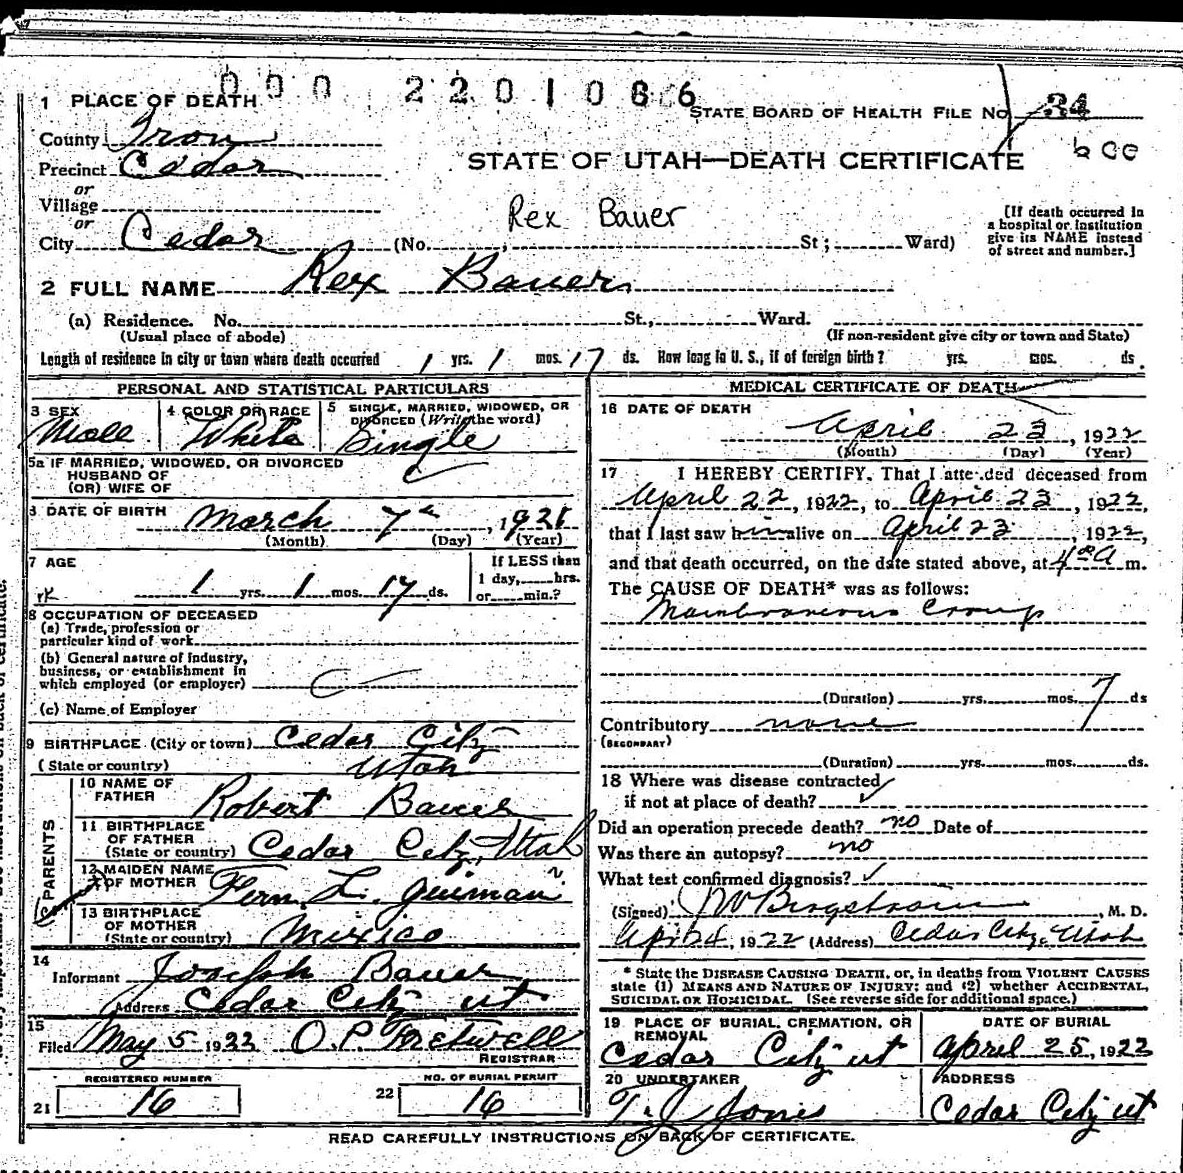 000 2201066
1 PLACE OF DEATH
STATE BOARD OF HEALTH FILE No. 34
County Iron
STATE OF UTAH—DEATH CERTIFICATE
Precinct Cedar
or
Village
or
Rex Bauer
[If death occurred in a hospital or institution give its NAME instead of street and number.]
City Cedar (No. , St; Ward)
2 FULL NAME Rex Bauer
(a) Residence. No. St., Ward.
(Usual place of abode) (If non-resident give city or town and State)
Length of residence in city or town where death occurred 1 yrs. 1 mos. 17 ds. How long in U. S., if of foreign birth? yrs. mos. ds.
PERSONAL AND STATISTICAL PARTICULARS
3 SEX Male
4 COLOR OR RACE White
5 SINGLE, MARRIED, WIDOWED, OR DIVORCED (Write the word) Single
5a IF MARRIED, WIDOWED, OR DIVORCED
HUSBAND OF
(OR) WIFE OF
6 DATE OF BIRTH March 7th, 1921
(Month) (Day) (Year)
7 AGE
1 yrs. 1 mos. 17 ds.
If LESS than
1 day, hrs.
or min.?
8 OCCUPATION OF DECEASED
(a) Trade, profession or
particular kind of work
(b) General nature of industry,
business, or establishment in
which employed (or employer)
(c) Name of Employer
9 BIRTHPLACE (City or town) Cedar City
(State or country) Utah
PARENTS
10 NAME OF FATHER Robert Bauer
11 BIRTHPLACE OF FATHER
(State or country) Cedar City, Utah
12 MAIDEN NAME OF MOTHER Fern L.
13 BIRTHPLACE OF MOTHER
(State or country) Mexico
14
Informant Joseph Bauer
Address Cedar City ut
15
Filed May 5 1922 O. P. Fretwell
REGISTRAR
REGISTERED NUMBER
21 16
NO. OF BURIAL PERMIT
22 16
MEDICAL CERTIFICATE OF DEATH
16 DATE OF DEATH
April 23, 1922
(Month) (Day) (Year)
17 I HEREBY CERTIFY, That I attended deceased from
April 22, 1922, to April 23, 1922,
that I last saw him alive on April 23, 1922,
and that death occurred, on the date stated above, at 4 30 A m.
The CAUSE OF DEATH* was as follows:
Membraneous Croup
(Duration) yrs. mos. 7 ds
Contributory none
(SECONDARY)
(Duration) yrs. mos. ds.
18 Where was disease contracted
if not at place of death?
Did an operation precede death? no Date of
Was there an autopsy? no
What test confirmed diagnosis?
(Signed) J W Bergstrom, M. D.
Apr 24, 1922 (Address) Cedar City, Utah
* State the DISEASE CAUSING DEATH, or, in deaths from VIOLENT CAUSES
state (1) MEANS AND NATURE OF INJURY; and (2) whether ACCIDENTAL,
SUICIDAL OR HOMICIDAL. (See reverse side for additional space.)
19 PLACE OF BURIAL, CREMATION, OR REMOVAL
Cedar City ut
DATE OF BURIAL
April 25, 1922
20 UNDERTAKER
T. J. Jones
ADDRESS
Cedar City ut
READ CAREFULLY INSTRUCTIONS ON BACK OF CERTIFICATE.